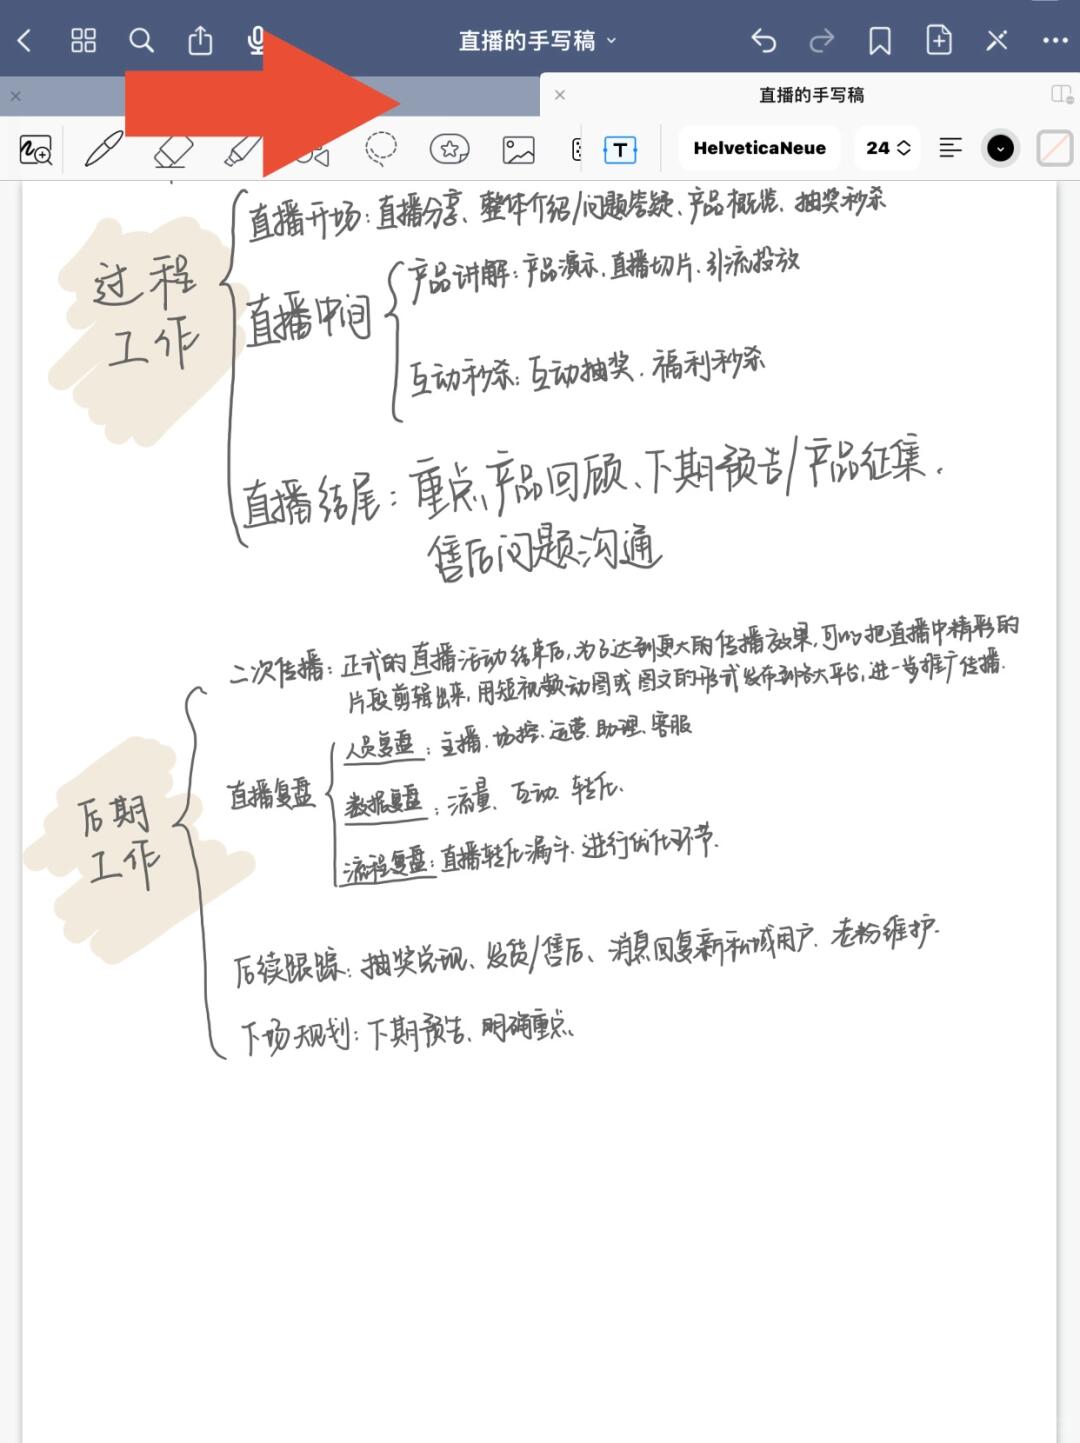 直播的手写稿
直播的手写稿
HelveticaNeue
24
T
过程
工作
直播开场：直播分享、整体介绍/问题答疑、产品概览、抽奖秒杀
直播中间
产品讲解：产品演示、直播切片、引流投放
互动秒杀：互动抽奖、福利秒杀
直播结尾：重点产品回顾、下期预告/产品征集、
售后问题沟通
后期
工作
二次传播：正式的直播活动结束后，为了达到更大的传播效果，可以把直播中精彩的
片段剪辑出来，用短视频动图或图文的形式发布到各大平台，进一步推广传播.
直播复盘
人员复盘：主播、场控、运营、助理、客服
数据复盘：流量、互动、转化、
流程复盘：直播转化漏斗、进行优化环节.
后续跟踪：抽奖兑现、发货/售后、消息回复新私域用户、老粉维护.
下场规划：下期预告、明确重点、